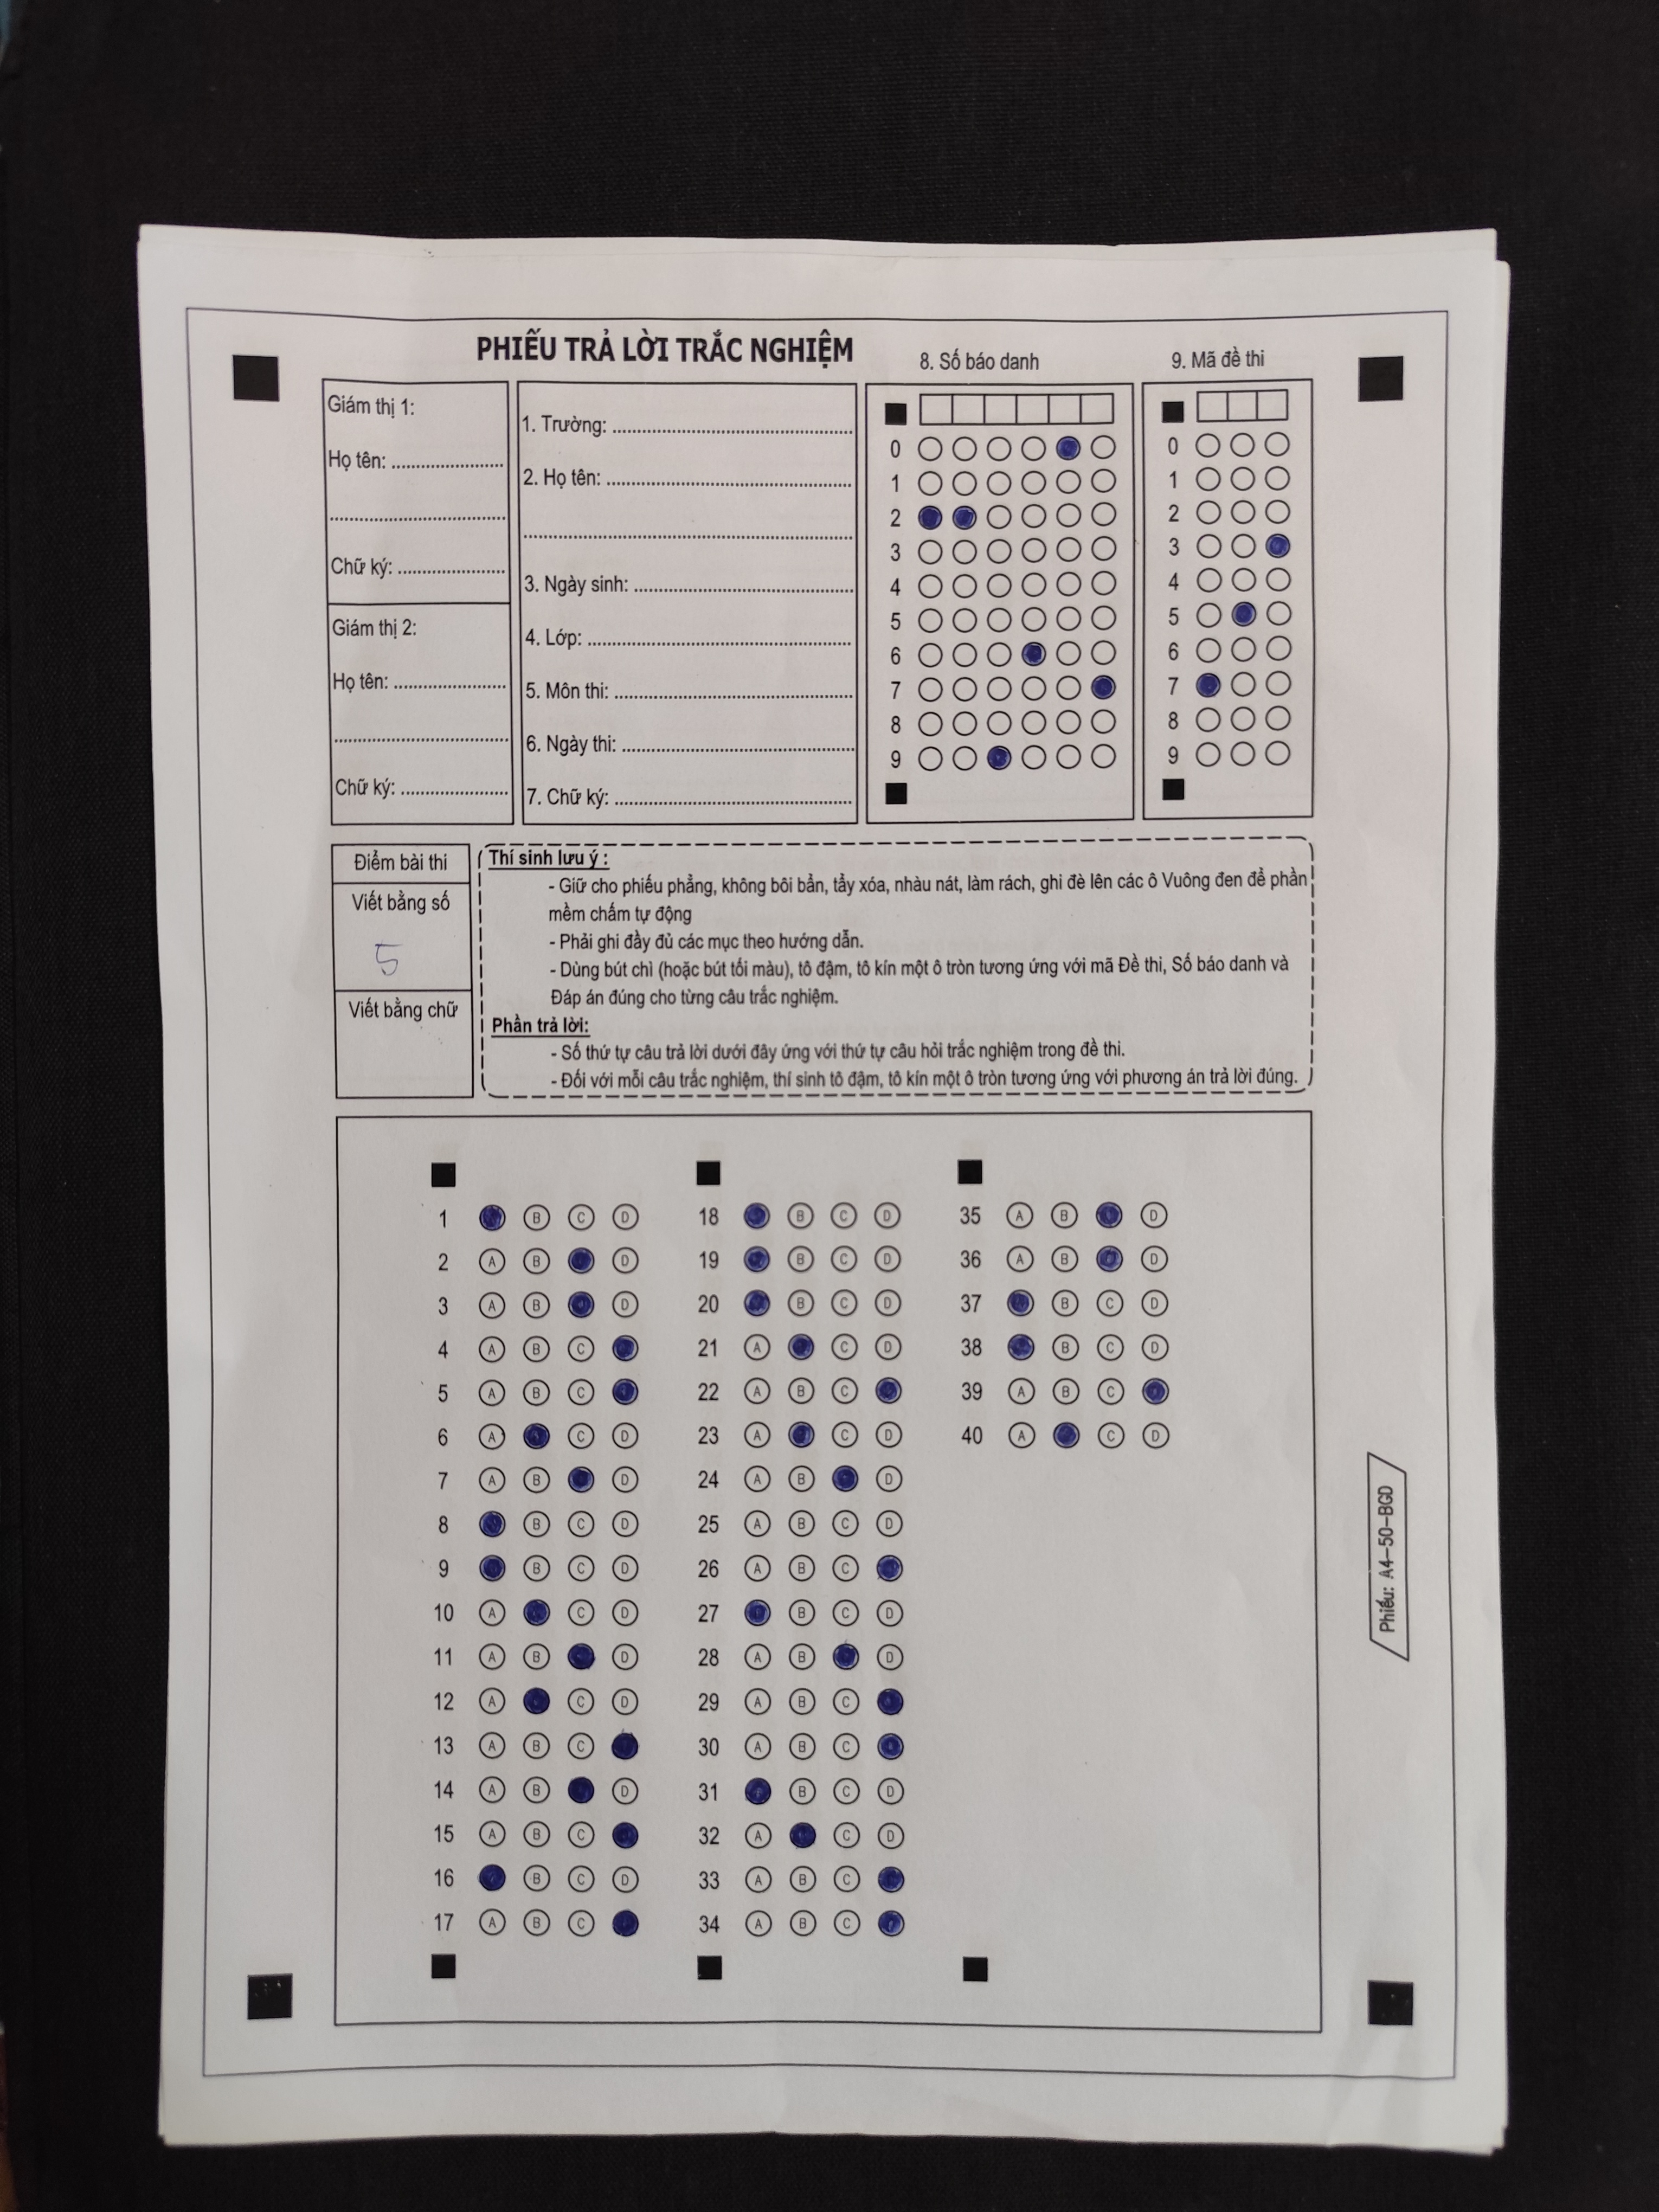 PHIẾU TRẢ LỜI TRẮC NGHIỆM
8. Số báo danh
9. Mã đề thi
Giám thị 1:
Họ tên: ....................
..............................
Chữ ký: ....................
Giám thị 2:
Họ tên: ....................
..............................
Chữ ký: ....................
1. Trường: ..............................
2. Họ tên: ..............................
..............................
3. Ngày sinh: ..............................
4. Lớp: ..............................
5. Môn thi: ..............................
6. Ngày thi: ..............................
7. Chữ ký: ..............................
0
1
2
3
4
5
6
7
8
9
0
1
2
3
4
5
6
7
8
9
Điểm bài thi
Viết bằng số
5
Viết bằng chữ
Thí sinh lưu ý :
- Giữ cho phiếu phẳng, không bôi bẩn, tẩy xóa, nhàu nát, làm rách, ghi đè lên các ô Vuông đen để phần
mềm chấm tự động
- Phải ghi đầy đủ các mục theo hướng dẫn.
- Dùng bút chì (hoặc bút tối màu), tô đậm, tô kín một ô tròn tương ứng với mã Đề thi, Số báo danh và
Đáp án đúng cho từng câu trắc nghiệm.
Phần trả lời:
- Số thứ tự câu trả lời dưới đây ứng với thứ tự câu hỏi trắc nghiệm trong đề thi.
- Đối với mỗi câu trắc nghiệm, thí sinh tô đậm, tô kín một ô tròn tương ứng với phương án trả lời đúng.
1 B C D
2 A B D
3 A B D
4 A B C
5 A B C
6 A C D
7 A B D
8 B C D
9 B C D
10 A C D
11 A B D
12 A C D
13 A B C
14 A B D
15 A B C
16 B C D
17 A B C
18 B C D
19 B C D
20 B C D
21 A C D
22 A B C
23 A C D
24 A B D
25 A B C D
26 A B C
27 B C D
28 A B D
29 A B C
30 A B C
31 B C D
32 A C D
33 A B C
34 A B C
35 A B D
36 A B D
37 B C D
38 B C D
39 A B C
40 A C D
Phiếu: A4-50-BGD